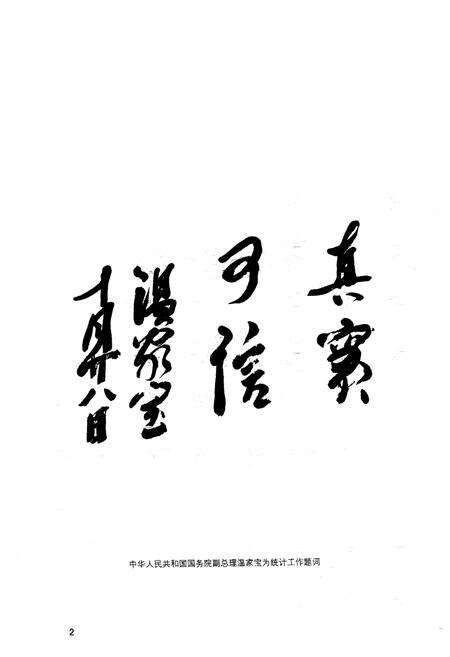 真实
可信
温家宝
十月廿八日
中华人民共和国国务院副总理温家宝为统计工作题词
2